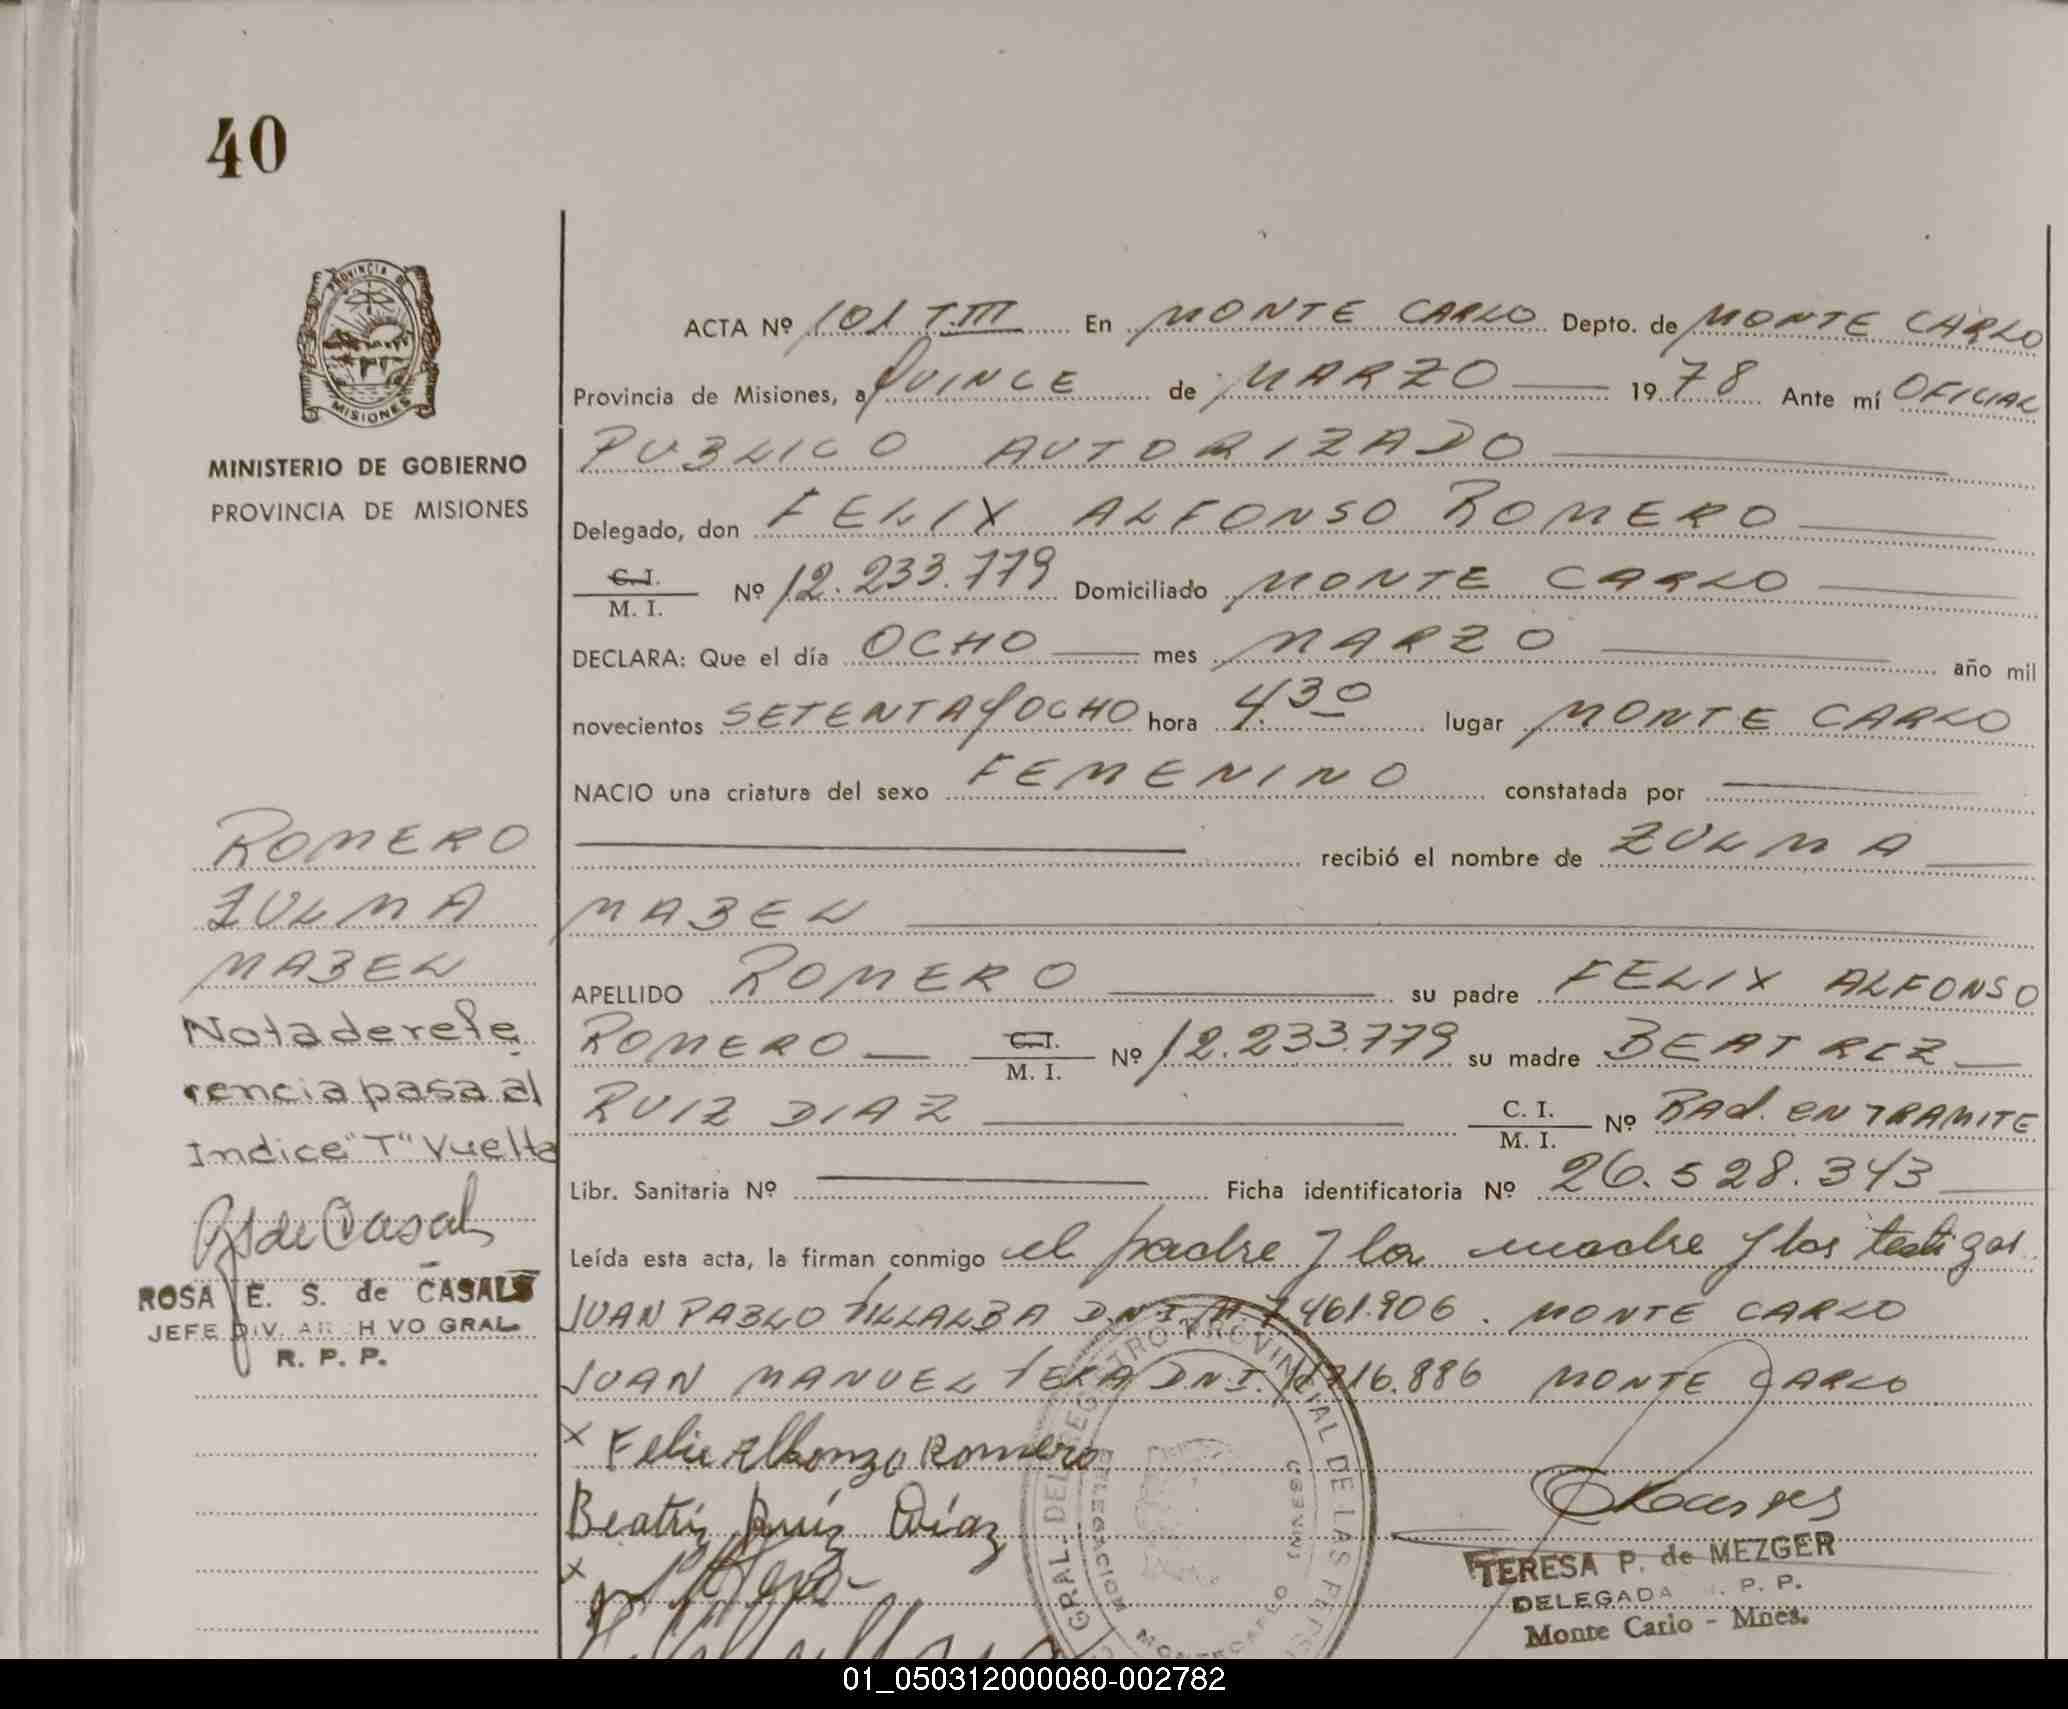 40
PROVINCIA DE
MISIONES
MINISTERIO DE GOBIERNO
PROVINCIA DE MISIONES
ROMERO
ZULMA
MABEL
Nota de refe
rencia pasa al
Indice "T" Vuelta
RS de Casals
ROSA E. S. de CASALS
JEFE DIV. ARCHIVO GRAL
R. P. P.
ACTA Nº 101 T.III En MONTE CARLO Depto. de MONTE CARLO
Provincia de Misiones, a QUINCE de MARZO 1978 Ante mí OFICIAL
PUBLICO AUTORIZADO
Delegado, don FELIX ALFONSO ROMERO
C. I.
M. I. Nº 12.233.779 Domiciliado MONTE CARLO
DECLARA: Que el día OCHO mes MARZO año mil
novecientos SETENTA Y OCHO hora 4.30 lugar MONTE CARLO
NACIO una criatura del sexo FEMENINO constatada por
recibió el nombre de ZULMA
MABEL
APELLIDO ROMERO su padre FELIX ALFONSO
ROMERO C. I. M. I. Nº 12.233.779 su madre BEATRIZ
RUIZ DIAZ C. I. M. I. Nº RAD. EN TRAMITE
Libr. Sanitaria Nº Ficha identificatoria Nº 26.528.343
Leída esta acta, la firman conmigo el padre y la madre y los testigos
JUAN PABLO VILLALBA DNI M 7.461.906. MONTE CARLO
JUAN MANUEL VERA D.N.I. MONTE CARLO
x Felix Alfonzo Romero
Beatriz Ruíz Díaz
x
TERESA P. de MEZGER
DELEGADA P. P.
Monte Carlo - Mnes.
GRAL. DEL REGISTRO PROVINCIAL DE LAS PERSONAS
DELEGACION
MONTECARLO
MISIONES
01_050312000080-002782